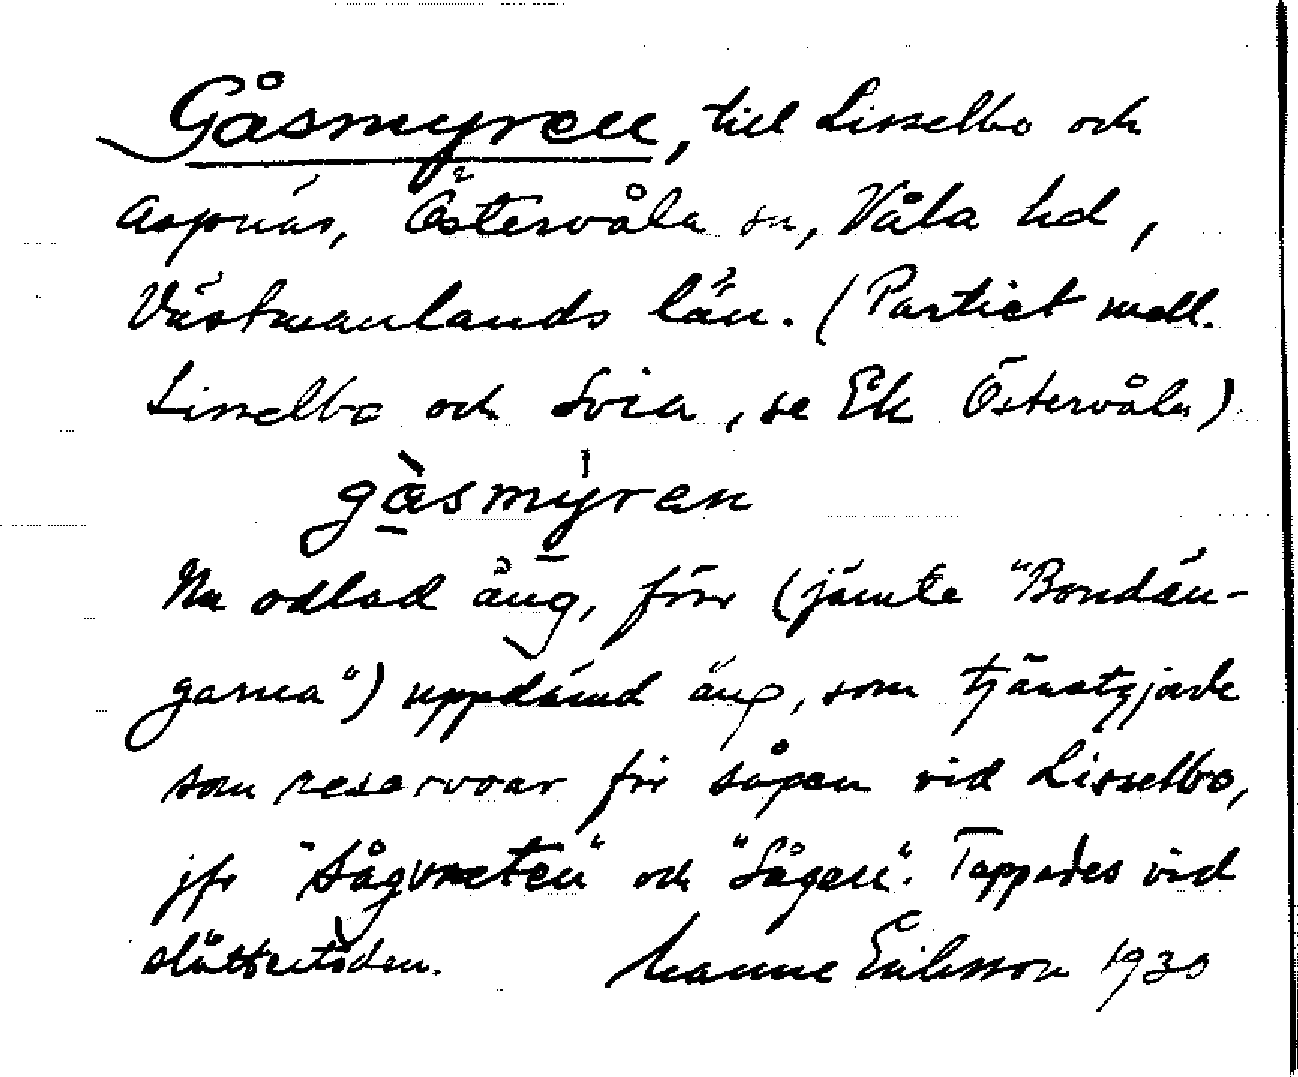 Gåsmyren, till Lisselbo och
Aspnäs, Östervåla sn, Våla hd,
Västmanlands län. (Partiet mell.
Lisselbo och Svia, se Ek Östervåla)
gåsmyren
Nu odlad äng, förr (jämte "Bondän-
garna") uppdämd äng, som tjänstgjorde
som reservoar för sågen vid Lisselbo,
jfr "Sågvreten" och "Sågen". Tappades vid
slåttertiden. Manne Eriksson 1930